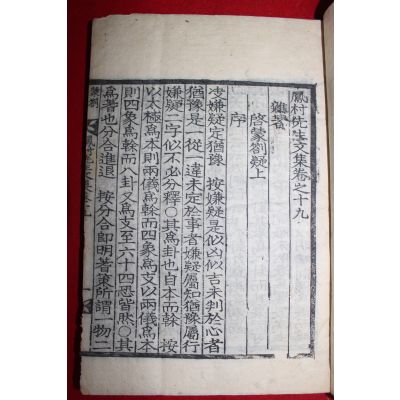 鳳村先生文集卷之十九
雜著
啓蒙劄疑上
序
決嫌疑定猶豫 按嫌疑是似凶似吉未判於心者
猶豫是一從一違未定於事者嫌疑屬知猶豫屬行
嫌疑二字似不必分釋〇其爲卦也自本而榦 按
以太極爲本則兩儀爲榦而四象爲支以兩儀爲本
則四象爲榦而八卦爲支至六十四恐皆然〇其
爲蓍也分合進退 按分合卽明蓍策所謂一物二
鳳村先生文集卷十九
一